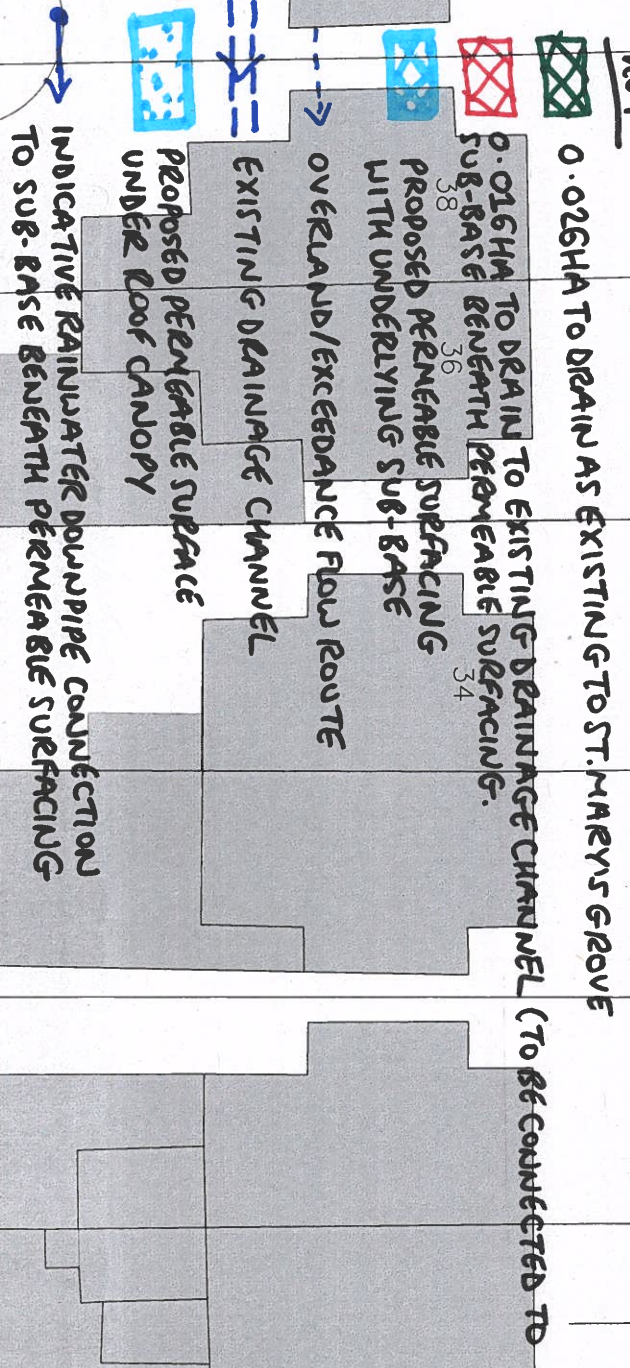 KEY
0.026HA TO DRAIN AS EXISTING TO ST. MARY'S GROVE
0.016HA TO DRAIN TO EXISTING DRAINAGE CHANNEL (TO BE CONNECTED TO
SUB-BASE BENEATH PERMEABLE SURFACING.
PROPOSED PERMEABLE SURFACING
WITH UNDERLYING SUB-BASE
OVERLAND/EXCEEDANCE FLOW ROUTE
EXISTING DRAINAGE CHANNEL
PROPOSED PERMEABLE SURFACE
UNDER ROOF CANOPY
INDICATIVE RAINWATER DOWNPIPE CONNECTION
TO SUB-BASE BENEATH PERMEABLE SURFACING
38
36
34